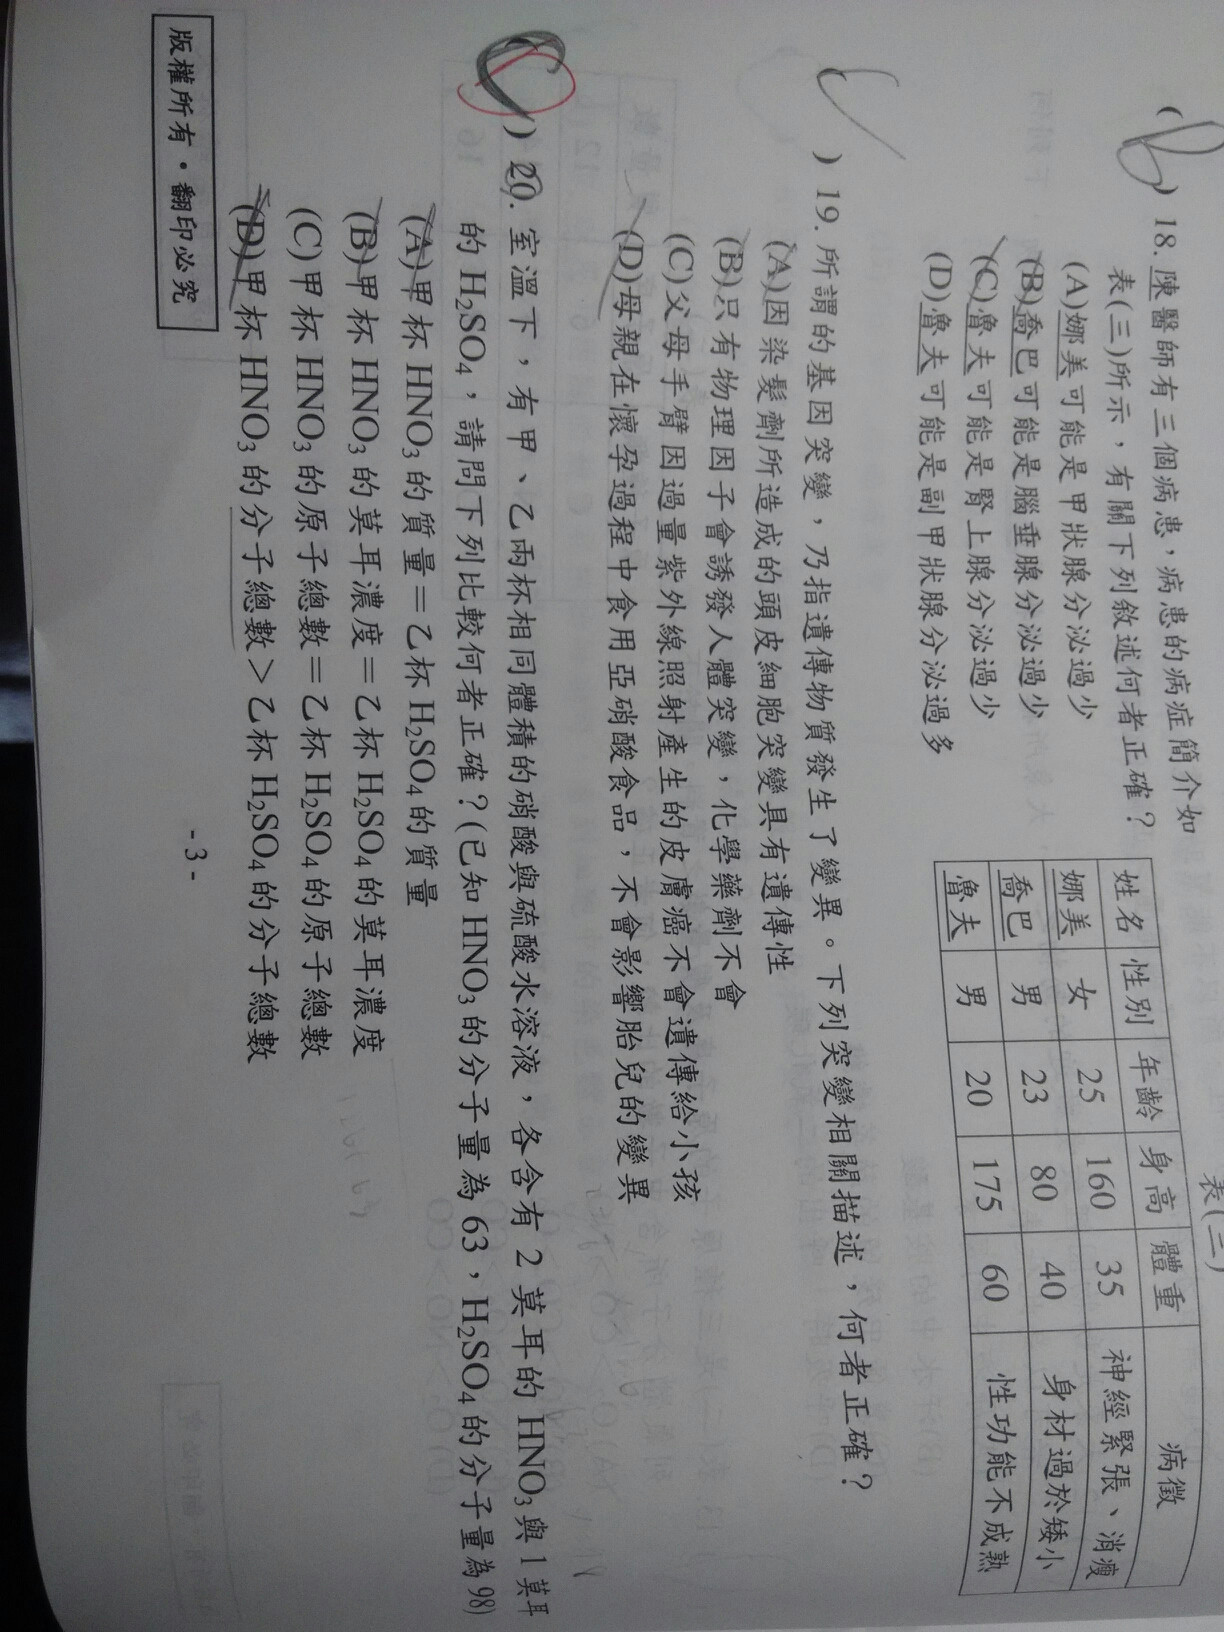 表(三)
B
( ) 18. 陳醫師有三個病患,病患的病症簡介如
表(三)所示,有關下列敘述何者正確?
(A)娜美可能是甲狀腺分泌過少
(B)喬巴可能是腦垂腺分泌過少
(C)魯夫可能是腎上腺分泌過少
(D)魯夫可能是副甲狀腺分泌過多
姓名 性別 年齡 身高 體重 病徵
娜美 女 25 160 35 神經緊張、消瘦
喬巴 男 23 80 40 身材過於矮小
魯夫 男 20 175 60 性功能不成熟
C
) 19. 所謂的基因突變,乃指遺傳物質發生了變異。下列突變相關描述,何者正確?
(A)因染髮劑所造成的頭皮細胞突變具有遺傳性
(B)只有物理因子會誘發人體突變,化學藥劑不會
(C)父母手臂因過量紫外線照射產生的皮膚癌不會遺傳給小孩
(D)母親在懷孕過程中食用亞硝酸食品,不會影響胎兒的變異
C
) 20. 室溫下,有甲、乙兩杯相同體積的硝酸與硫酸水溶液,各含有 2 莫耳的 HNO₃與 1 莫耳
的 H₂SO₄,請問下列比較何者正確?(已知 HNO₃的分子量為 63,H₂SO₄的分子量為 98)
(A)甲杯 HNO₃的質量=乙杯 H₂SO₄的質量
(B)甲杯 HNO₃的莫耳濃度=乙杯 H₂SO₄的莫耳濃度
(C)甲杯 HNO₃的原子總數=乙杯 H₂SO₄的原子總數
(D)甲杯 HNO₃的分子總數>乙杯 H₂SO₄的分子總數
版權所有・翻印必究
- 3 -